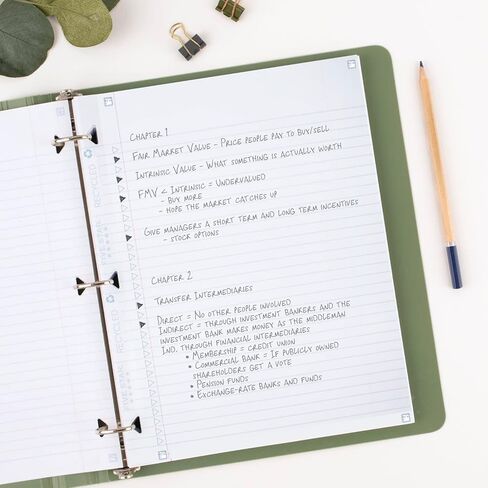 Chapter 1
Fair Market Value - Price people pay to buy/sell
Intrinsic Value - What something is actually worth
FMV < Intrinsic = Undervalued
- Buy more
- Hope the market catches up
Give managers a short term and long term incentives
- stock options
Chapter 2
Transfer Intermediaries
Direct = No other people involved
Indirect = through investment bankers and the
investment bank makes money as the middleman
Ind. through financial intermediaries
• Membership = credit union
• Commercial bank = If publicly owned
shareholders get a vote
• Pension funds
• Exchange-rate banks and funds
RECYCLED
RECYCLED